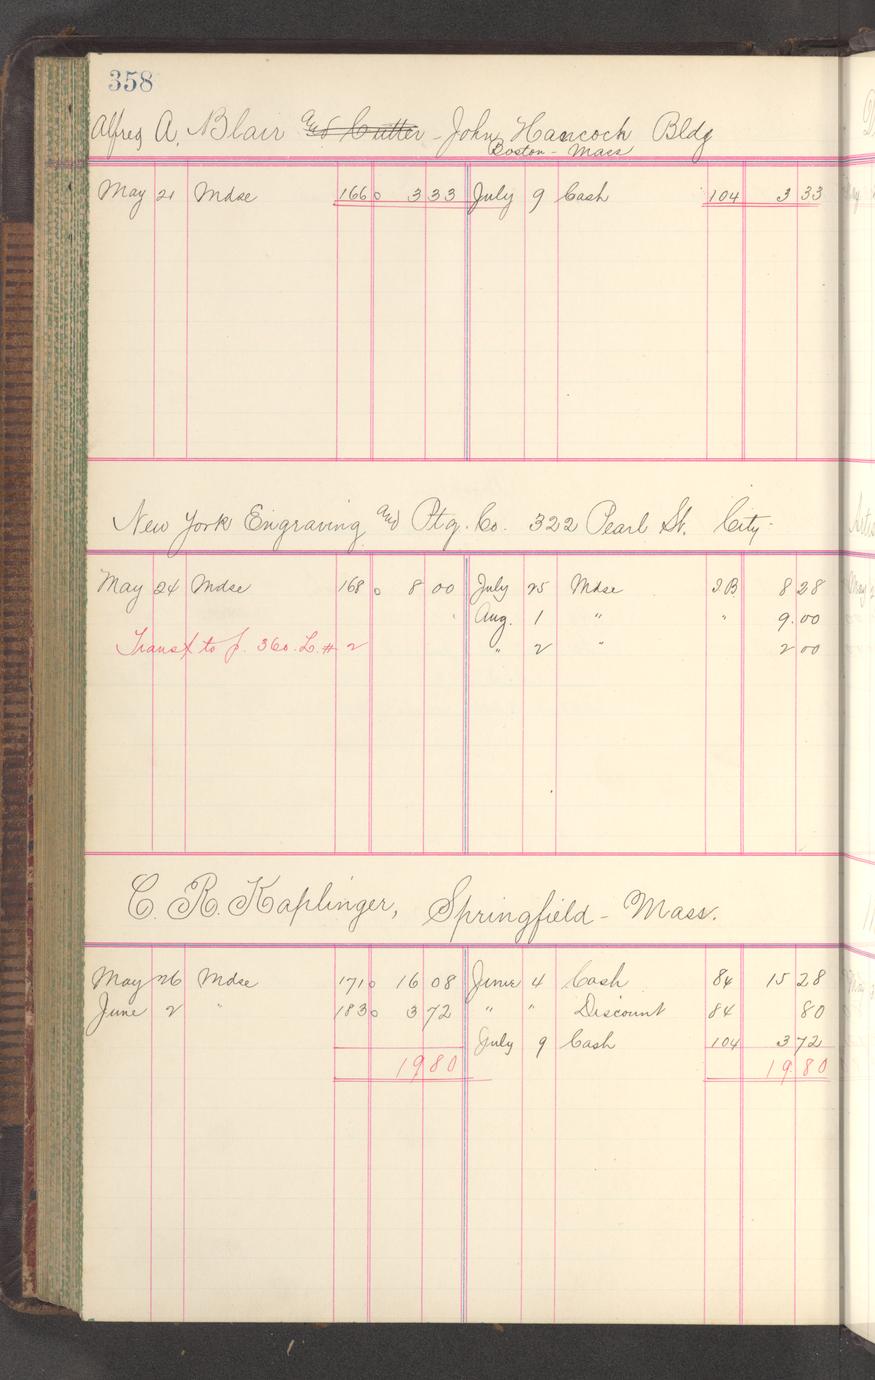 358
Alfred A. Blair and Cutter - John Hancock Bldg
Boston - Mass
May 21 Mdse 166 0 3 33 July 9 Cash 104 3 33
New York Engraving and Ptg. Co. 322 Pearl St. City-
May 24 Mdse 168 0 8 00 July 25 Mdse I.B. 8 28
Aug. 1 " " 9.00
Transf to p. 360. L. # 2 " 2 " 2 00
C. R. Kaplinger, Springfield - Mass.
May 26 Mdse 171 0 16 08 June 4 Cash 84 15 28
June 2 " 183 0 3 72 " " Discount 84 80
July 9 Cash 104 3 72
19 80 19 80